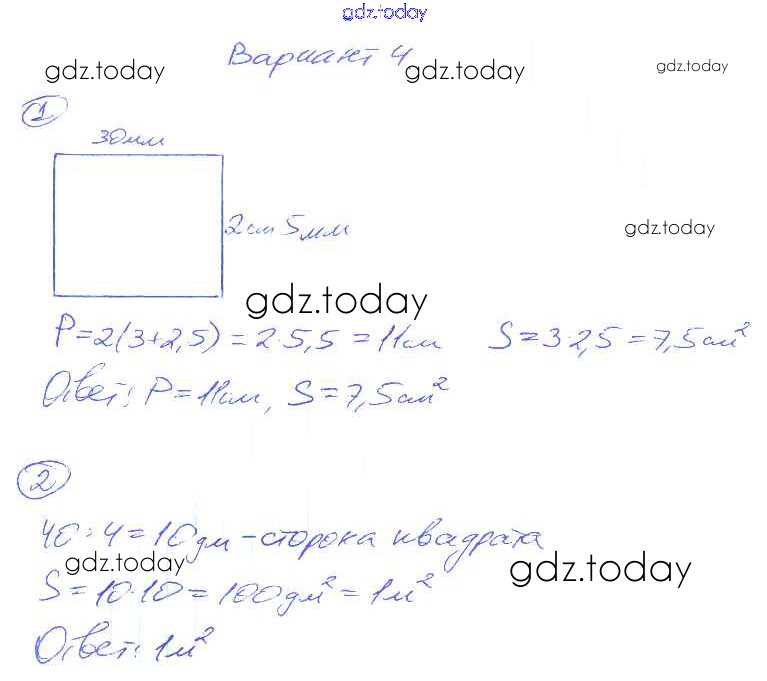 gdz.today
Вариант 4
gdz.today gdz.today gdz.today
1
30мм
2см 5мм
gdz.today
gdz.today
P=2(3+2,5)=2·5,5=11см S=3·2,5=7,5см²
Ответ: P=11см, S=7,5см²
2
40:4=10дм-сторона квадрата
gdz.today gdz.today
S=10·10=100дм²=1м²
Ответ: 1м²